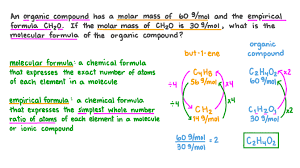 An organic compound has a molar mass of 60 g/mol and the empirical
formula CH₂O. If the molar mass of CH₂O is 30 g/mol, what is the
molecular formula of the organic compound?
but-1-ene
organic
compound
molecular formula: a chemical formula
that expresses the exact number of atoms
of each element in a molecule
C₄H₈
56 g/mol
C₂H₄O₂
60 g/mol
÷4
x4
÷4
x4
x2
x2
empirical formula: a chemical formula
that expresses the simplest whole number
ratio of atoms of each element in a molecule
or ionic compound
CH₂
14 g/mol
C₁H₂O₁
30 g/mol
60 g/mol
30 g/mol
= 2
C₂H₄O₂